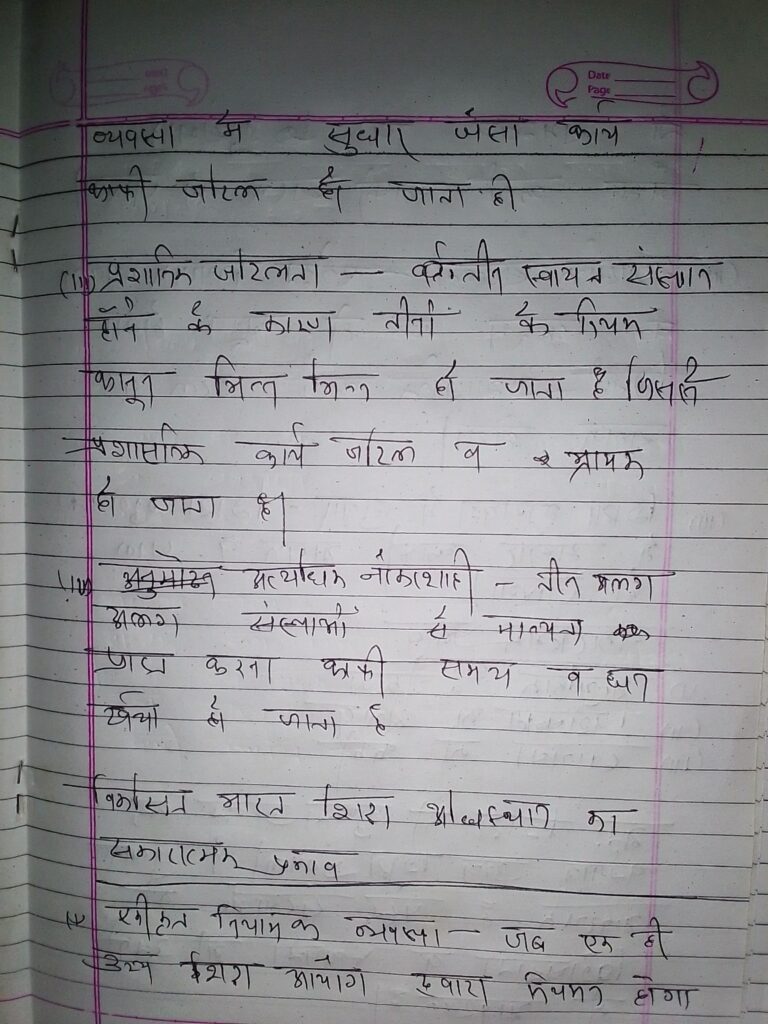 Date
Page
व्यवस्था मे सुधार जैसा कार्य
काफी जटिल हो जाता है।
(iii) प्रशासनिक जटिलता — तीन स्वायत्त संस्थान
होने के कारण तीनों के नियम
कानून भिन्न भिन्न हो जाता है जिससे
प्रशासनिक कार्य जटिल व भ्रामक
हो जाता है।
अनुमोदन अत्याधिक नौकरशाही - तीन अलग
अलग संस्थाओं से मान्यता
प्राप्त करना काफी समय व धन
खर्चा हो जाता है
विकसित भारत शिक्षा अधिष्ठान का
सकारात्मक प्रभाव
एकीकृत नियामक व्यवस्था — जब एक ही
उच्च शिक्षा आयोग द्वारा नियमन होगा